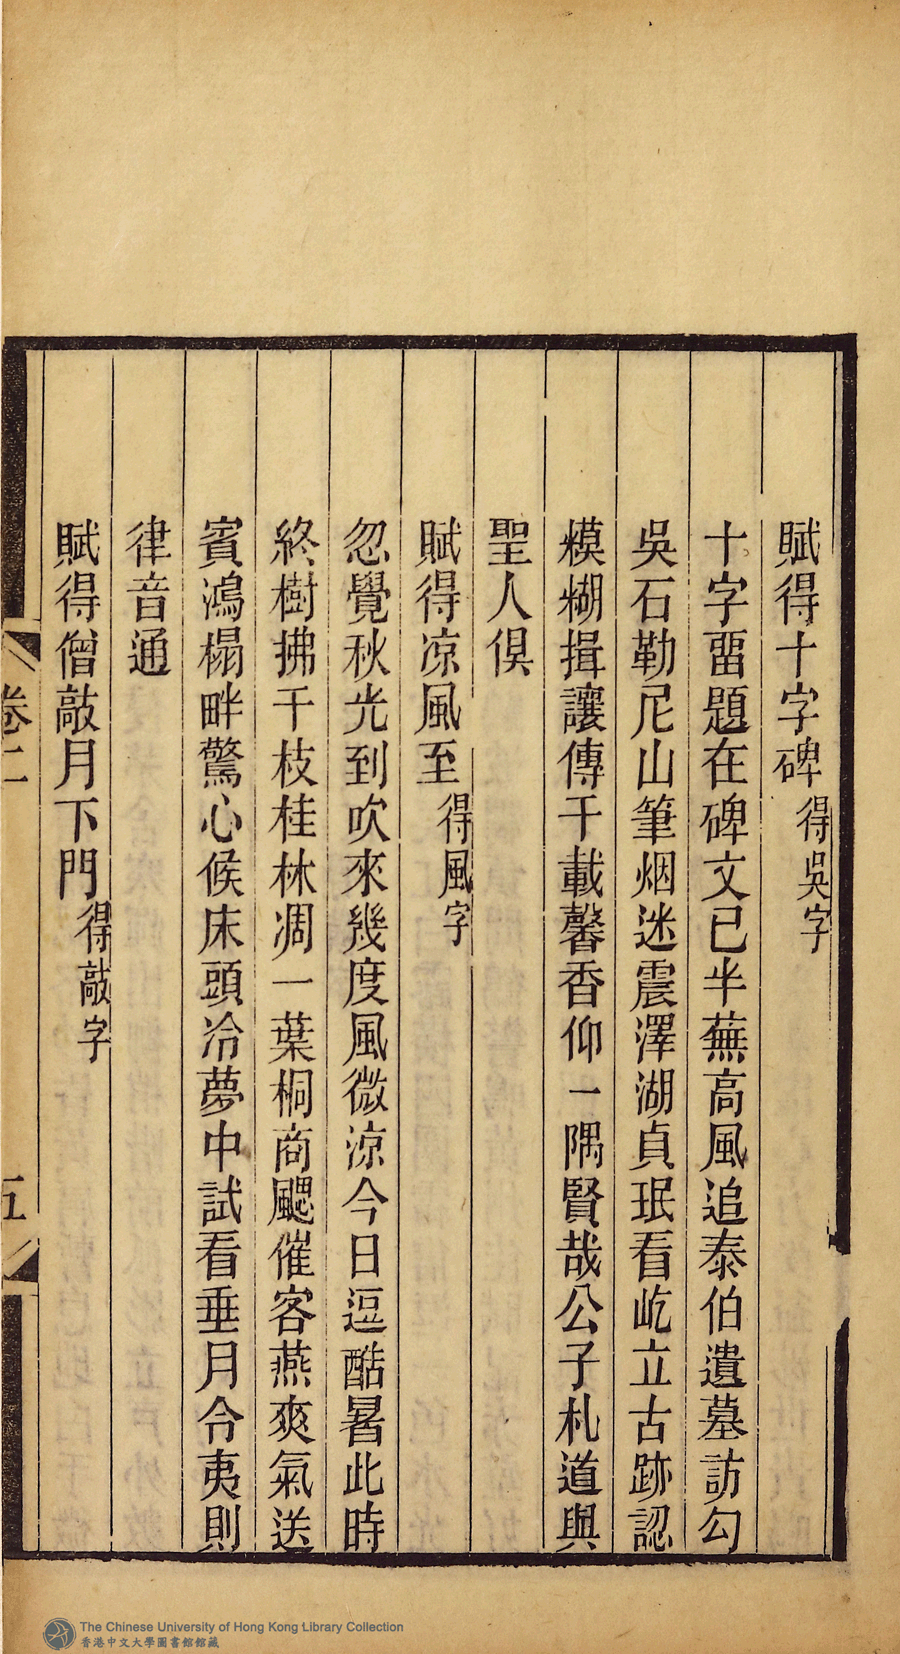 賦得十字碑得吳字
十字畱題在碑文已半蕪高風追泰伯遺墓訪勾
吳石勒尼山筆烟迷震澤湖貞珉看屹立古跡認
糢糊揖讓傳千載馨香仰一隅賢哉公子札道與
聖人俱
賦得凉風至得風字
忽覺秋光到吹來幾度風微涼今日逗酷暑此時
終樹拂千枝桂林凋一葉桐商颸催客燕爽氣送
賓鴻榻畔驚心候床頭冷夢中試看垂月令夷則
律音通
賦得僧敲月下門得敲字
卷二
五
The Chinese University of Hong Kong Library Collection
香港中文大學圖書館館藏